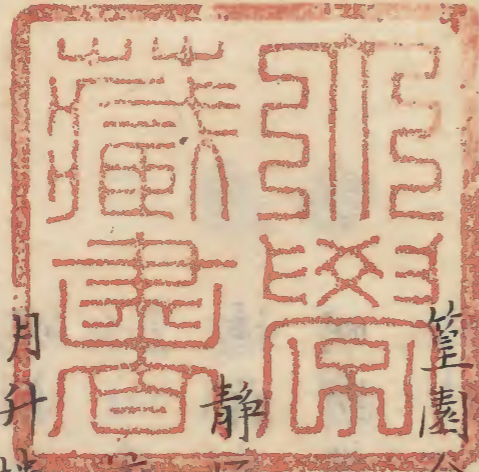 學
藏書
篁園
靜
月升